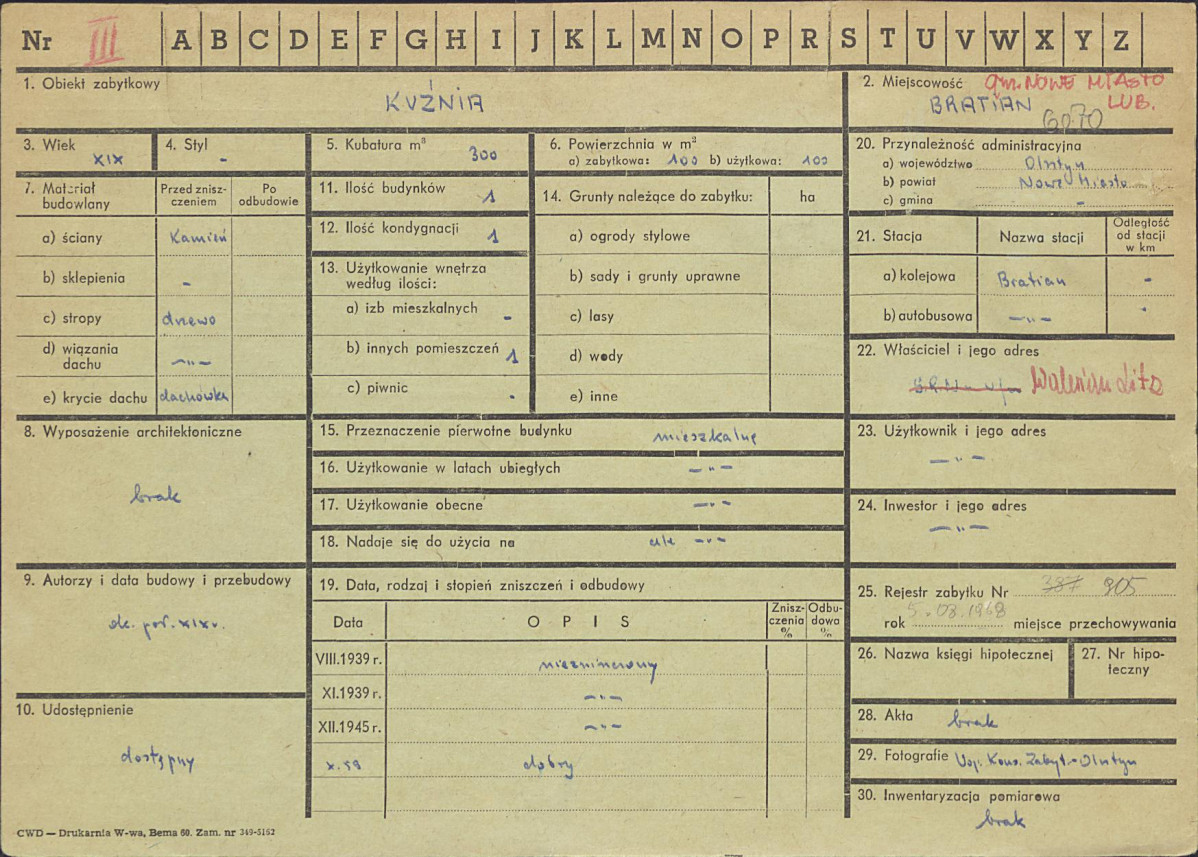 Nr III A B C D E F G H I J K L M N O P R S T U V W X Y Z
1. Obiekt zabytkowy
KUŹNIA
2. Miejscowość gm. NOWE MIASTO LUB.
BRATIAN
6070
3. Wiek XIX
4. Styl -
5. Kubatura m³ 300
6. Powierzchnia w m²
a) zabytkowa: 100 b) użytkowa: 100
7. Materiał budowlany
Przed zniszczeniem
Po odbudowie
a) ściany Kamień
b) sklepienia -
c) stropy drzewo
d) wiązania dachu -"-
e) krycie dachu dachówka
8. Wyposażenie architektoniczne
brak
9. Autorzy i data budowy i przebudowy
dr. poł. XIX w.
10. Udostępnienie
dostępny
11. Ilość budynków 1
12. Ilość kondygnacji 1
13. Użytkowanie wnętrza według ilości:
a) izb mieszkalnych -
b) innych pomieszczeń 1
c) piwnic -
14. Grunty należące do zabytku: ha
a) ogrody stylowe
b) sady i grunty uprawne
c) lasy
d) wody
e) inne
15. Przeznaczenie pierwotne budynku mieszkalne
16. Użytkowanie w latach ubiegłych -"-
17. Użytkowanie obecne -"-
18. Nadaje się do użycia na cele -"-
19. Data, rodzaj i stopień zniszczeń i odbudowy
Data OPIS Zniszczenia % Odbudowa %
VIII.1939 r. niezniszczony
XI.1939 r. -"-
XII.1945 r. -"-
X.59 dobry
20. Przynależność administracyjna
a) województwo Olsztyn
b) powiat Nowe Miasto
c) gmina -
21. Stacja Nazwa stacji Odległość od stacji w km
a) kolejowa Bratian -
b) autobusowa -"- -
22. Właściciel i jego adres
Walenian Lito
23. Użytkownik i jego adres
-"-
24. Inwestor i jego adres
-"-
25. Rejestr zabytku Nr 387 905
rok 5.03.1968 miejsce przechowywania
26. Nazwa księgi hipotecznej
27. Nr hipoteczny
28. Akta brak
29. Fotografie Woj. Kons. Zabyt. - Olsztyn
30. Inwentaryzacja pomiarowa
brak
CWD — Drukarnia W-wa, Bema 60. Zam. nr 349-5162